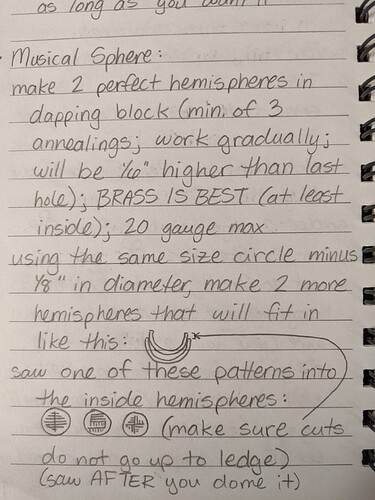 as long as you want it
Musical Sphere:
make 2 perfect hemispheres in
dapping block (min. of 3
annealings; work gradually;
will be 1/16" higher than last
hole); BRASS IS BEST (at least
inside); 20 gauge max
using the same size circle minus
1/8" in diameter, make 2 more
hemispheres that will fit in
like this:
saw one of these patterns into
the inside hemispheres:
(make sure cuts
do not go up to ledge)
(saw AFTER you dome it)